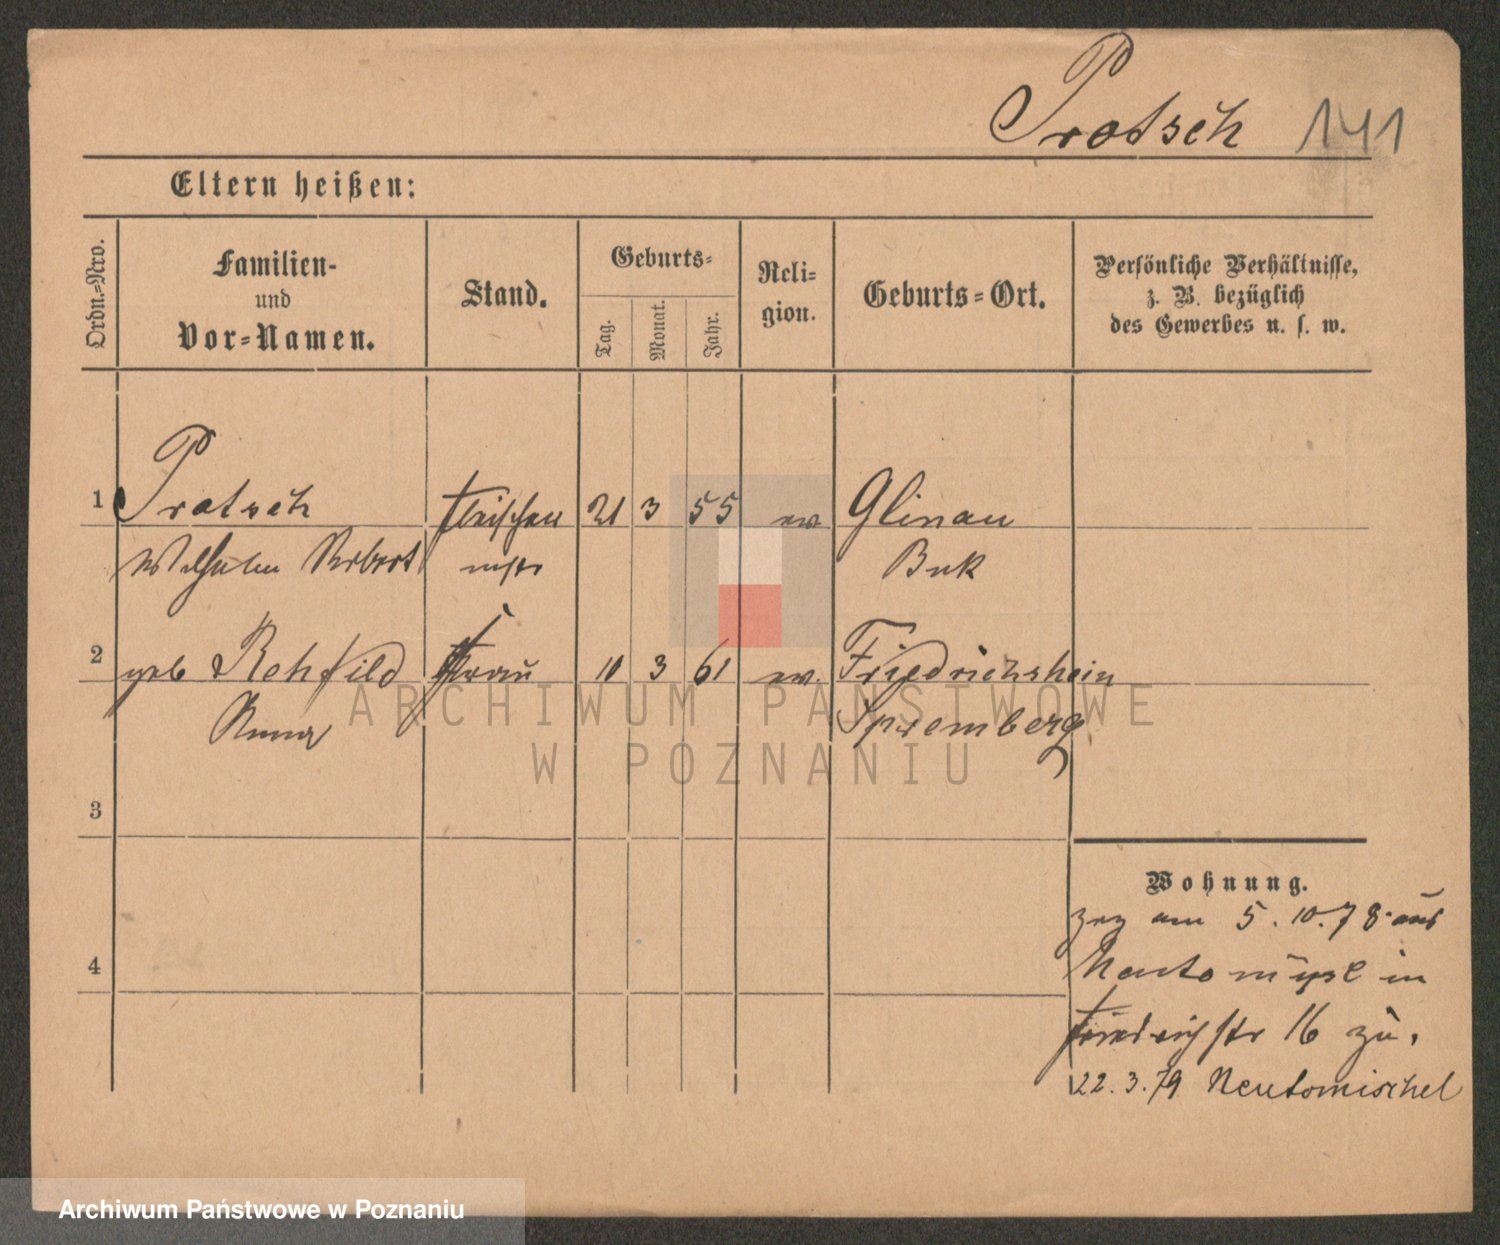 Protsch 141
Eltern heißen:
Ordn.-Nro.
Familien-
und
Vor-Namen.
Stand.
Geburts-
Tag.
Monat.
Jahr.
Reli-
gion.
Geburts-Ort.
Persönliche Verhältnisse,
z. B. bezüglich
des Gewerbes u. s. w.
1 Protsch Fleischer 21 3 55 ev Glinau
Wilhelm Robert mstr Buk
2 geb Rehfild Frau 10 3 61 ev. Friedrichshein
Anna Spremberg
3
4
Wohnung.
zog am 5. 10. 78 aus
Neutomysl in
Friedrichstr 16 zu.
22. 3. 79 Neutomischel
ARCHIWUM PAŃSTWOWE
W POZNANIU
Archiwum Państwowe w Poznaniu